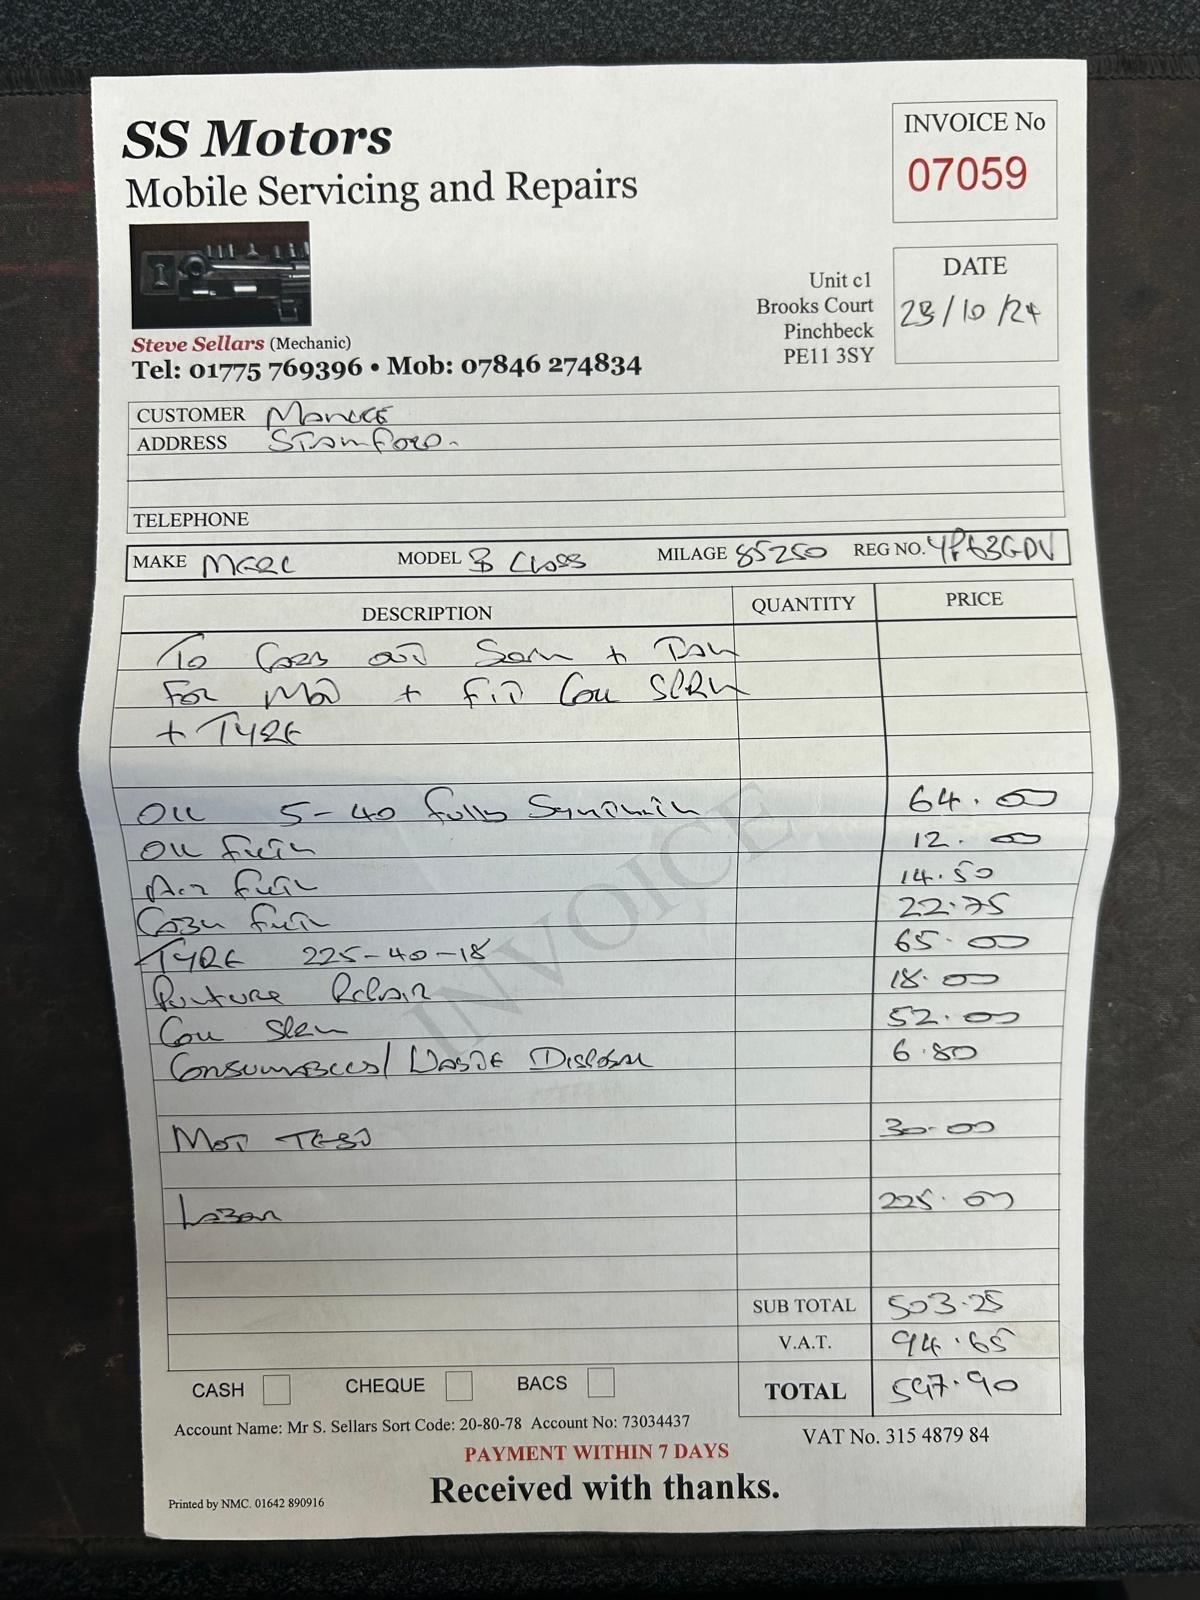 SS Motors
Mobile Servicing and Repairs
INVOICE No
07059
DATE
23/10/24
Unit c1
Brooks Court
Pinchbeck
PE11 3SY
Steve Sellars (Mechanic)
Tel: 01775 769396 • Mob: 07846 274834
CUSTOMER
ADDRESS Stamford.
TELEPHONE
MAKE MERC MODEL B Class MILAGE 85250 REG NO. YP63GDV
DESCRIPTION QUANTITY PRICE
To out +
For Mot + Fit
+ TYRE
INVOICE
Oil 5-40 Fully 64.00
Oil 12.00
Air 14.50
22.75
TYRE 225-40-18 65.00
Punture Repair 18.00
52.00
Consumables/ Waste Disposal 6.80
Mot TEST 30.00
Labour 225.00
SUB TOTAL 503.25
V.A.T. 94.65
TOTAL 597.90
CASH CHEQUE BACS
Account Name: Mr S. Sellars Sort Code: 20-80-78 Account No: 73034437
VAT No. 315 4879 84
PAYMENT WITHIN 7 DAYS
Received with thanks.
Printed by NMC. 01642 890916